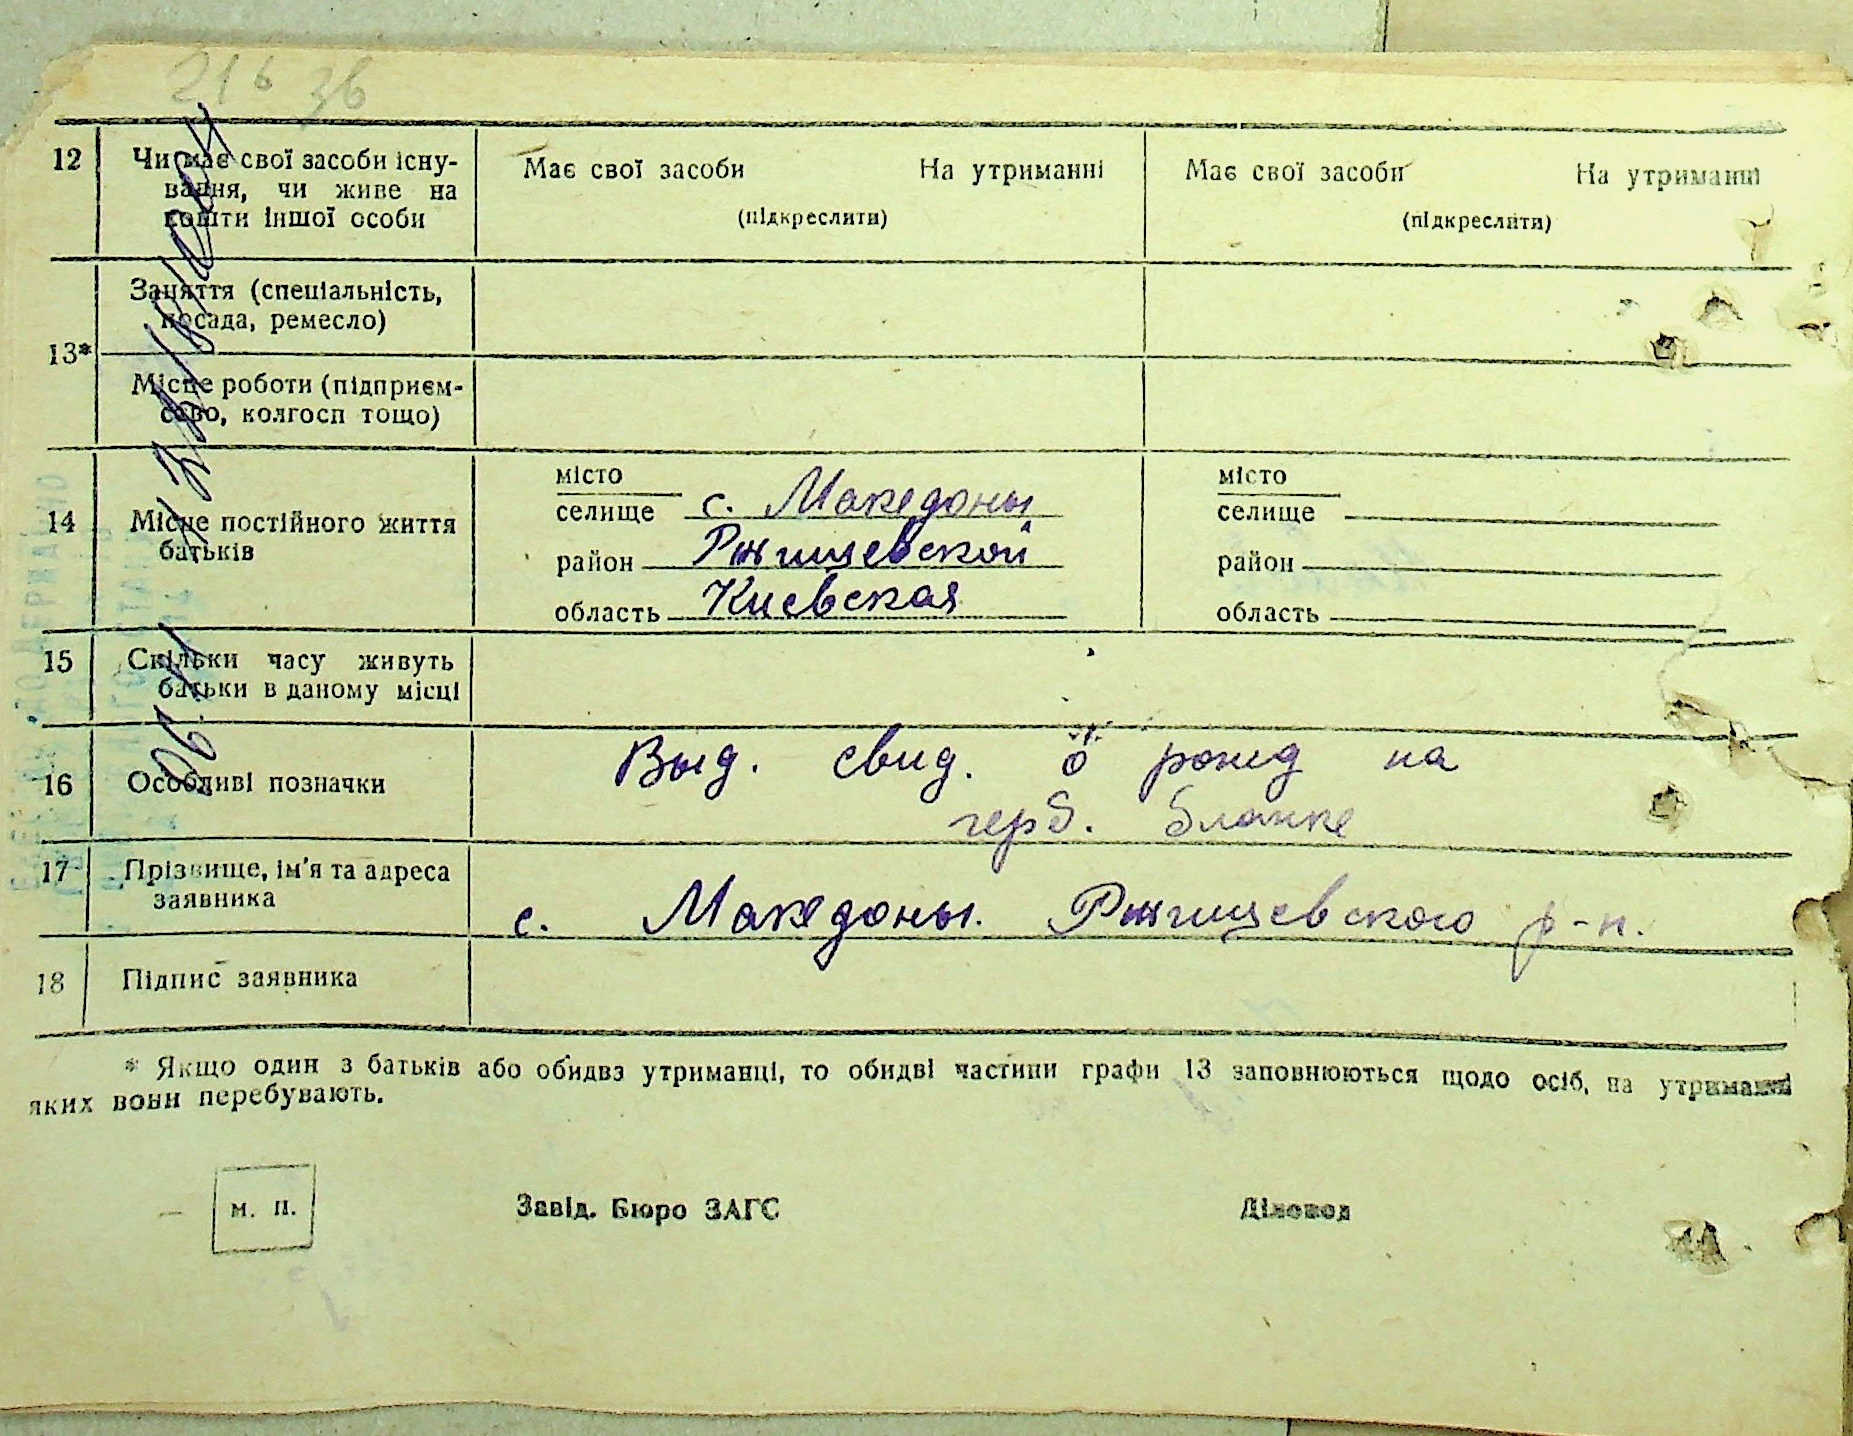 12 Чи має свої засоби існу-
вання, чи живе на
кошти іншої особи
Має свої засоби На утриманні
(підкреслити)
Має свої засоби На утриманні
(підкреслити)
13*
Заняття (спеціальність,
посада, ремесло)
Місце роботи (підприєм-
ство, колгосп тощо)
14 Місце постійного життя
батьків
місто
селище с. Македоны
район Ржищевской
область Киевская
місто
селище
район
область
15 Скільки часу живуть
батьки в даному місці
16 Особливі позначки
Выд. свид. о рожд на
герб. бланке
17 Прізвище, ім'я та адреса
заявника
с. Македоны. Ржищевского р-н.
18 Підпис заявника
* Якщо один з батьків або обидва утриманці, то обидві частини графи 13 заповнюються щодо осіб, на утриманні
яких вони перебувають.
м. п.
Завід. Бюро ЗАГС Діловод